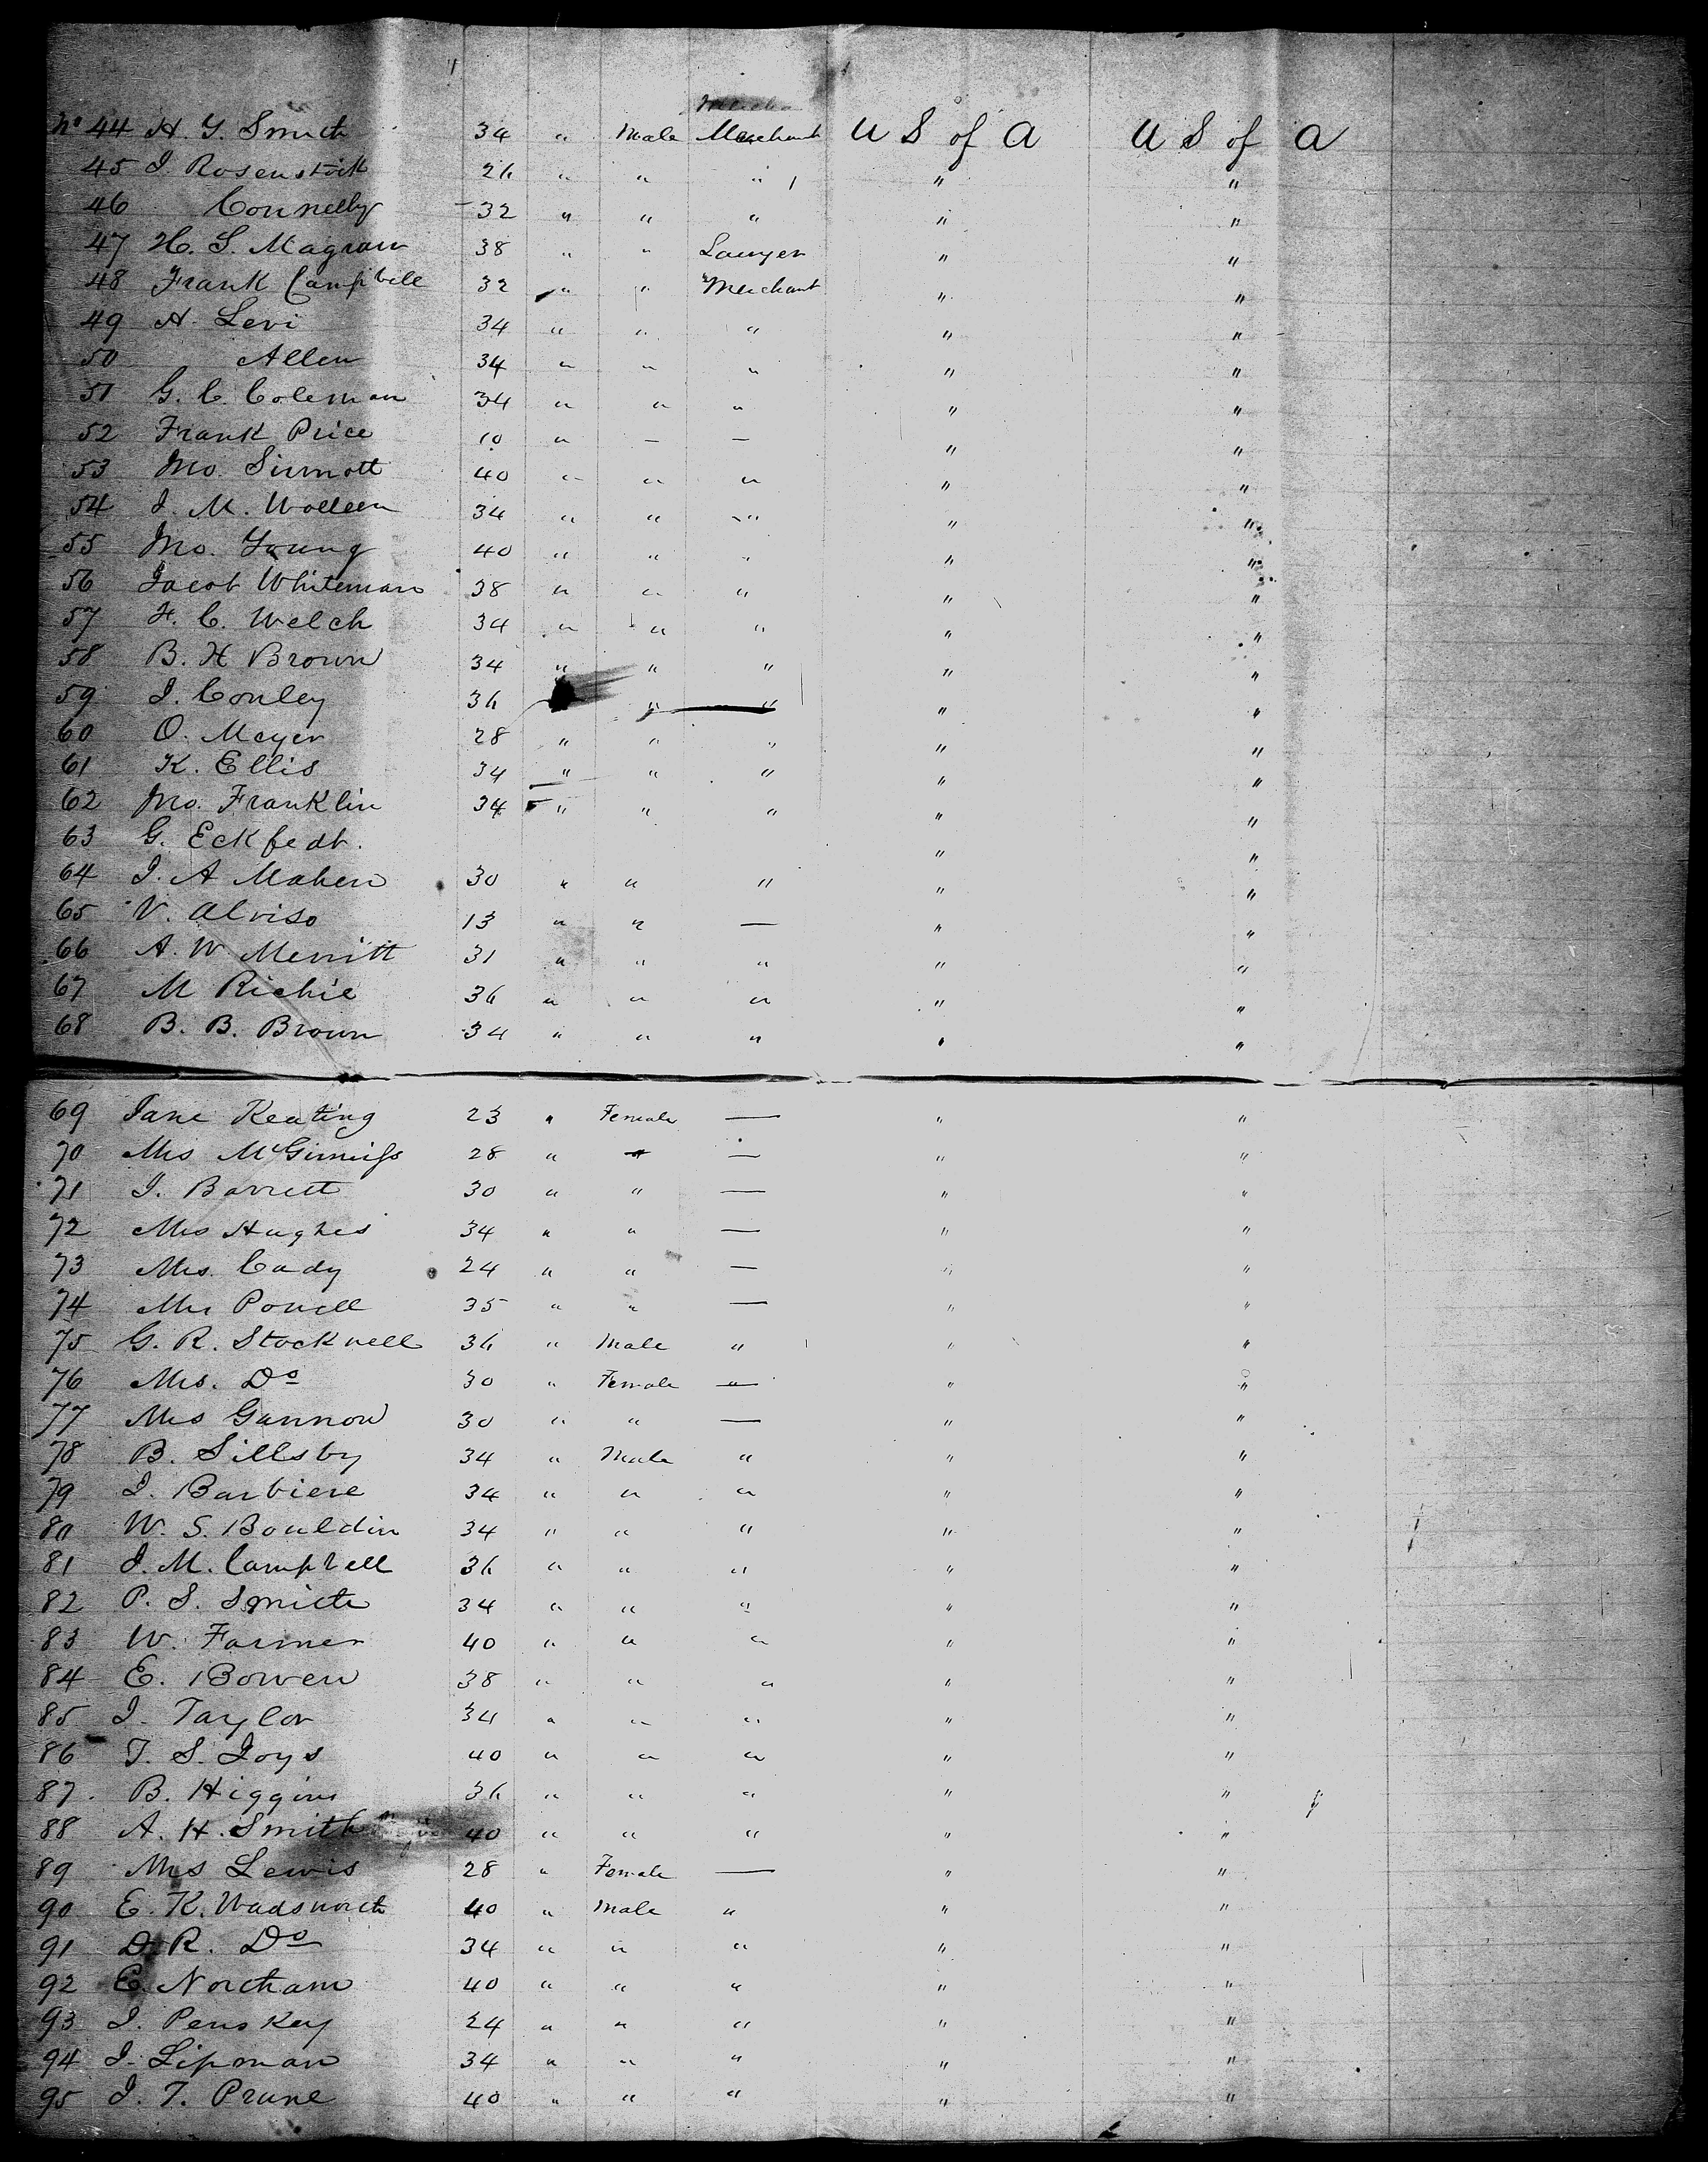 No 44 H. Y. Smith 34 " Male Merchant U S of A U S of A
45 I. Rosenstock 26 " " " " "
46 Connelly 32 " " " " "
47 H. S. Magraw 38 " " Lawyer " "
48 Frank Campbell 32 " " Merchant " "
49 A. Levi 34 " " " " "
50 Allen 34 " " " " "
51 G. C. Coleman 34 " " " " "
52 Frank Price 10 " — — " "
53 Jno. Sirmott 40 " " " " "
54 I. M. Wolleen 34 " " " " "
55 Jno. Young 40 " " " " "
56 Jacob Whiteman 38 " " " " "
57 H. C. Welch 34 " " " " "
58 B. H Brown 34 " " " " "
59 I. Conley 36 " " " "
60 O. Meyer 28 " " " " "
61 K. Ellis 34 " " " " "
62 Jno. Franklin 34 " " " " "
63 G. Eckfedt. " "
64 I. A Mahen 30 " " " " "
65 V. Alviso 13 " " — " "
66 A. W Merritt 31 " " " " "
67 M Richie 36 " " " " "
68 B. B. Brown 34 " " " " "
69 Jane Keating 23 " Female — " "
70 Mrs McGinniss 28 " " — " "
71 I. Barrett 30 " " — " "
72 Mrs Hughes 34 " " — " "
73 Mrs. Cady 24 " " — " "
74 Mrs Powell 35 " " — " "
75 G. R. Stockwell 36 " Male " " "
76 Mrs. Do 30 " Female — " "
77 Mrs Gannon 30 " " — " "
78 B. Sillsby 34 " Male " " "
79 I. Barbiere 34 " " " " "
80 W. S. Bouldin 34 " " " " "
81 I. M. Campbell 36 " " " " "
82 P. S. Smith 34 " " " " "
83 W. Farmer 40 " " " " "
84 E. Bowen 38 " " " " "
85 I. Taylor 34 " " " " "
86 T. S. Joys 40 " " " " "
87. B. Higgins 36 " " " " "
88 A. H. Smith 40 " " " " "
89 Mrs Lewis 28 " Female — " "
90 E. K. Wadsworth 40 " Male " " "
91 D. R. Do 34 " " " " "
92 E. Northam 40 " " " " "
93 I. Penskey 24 " " " " "
94 I. Lipman 34 " " " " "
95 I. T. Prune 40 " " " " "